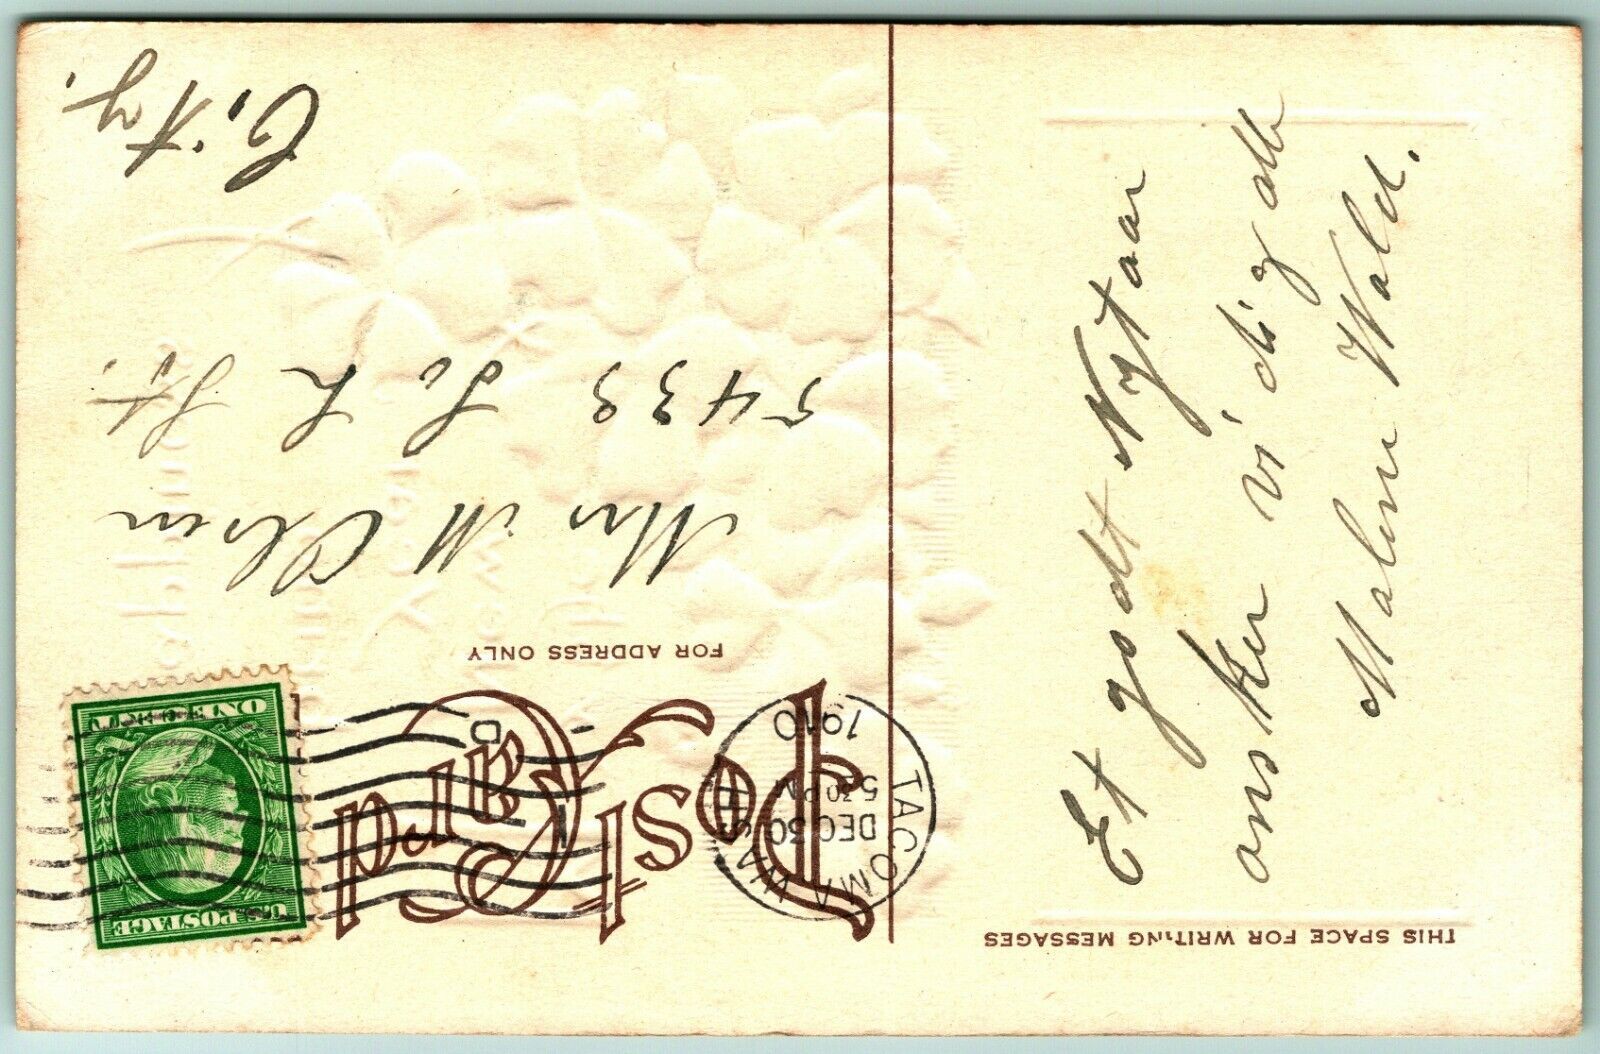 THIS SPACE FOR WRITING MESSAGES
Et godt Nytaar
ønsker vi dig alle
Malene Wald.
Post Card
FOR ADDRESS ONLY
TACOMA WASH.
DEC 30
5:30 PM
1910
D
U.S. POSTAGE
ONE CENT
Mrs M Olsen
5433 So L St.
City.